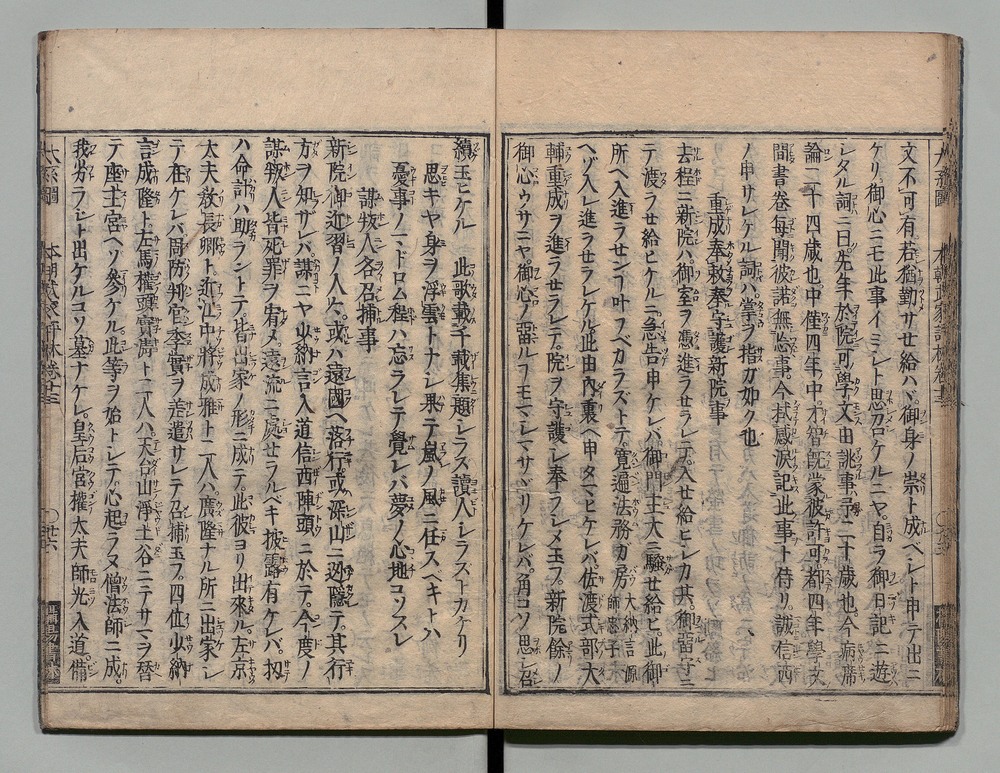 文不可有若猶勤サセ給ハヽ御身ノ祟ト成ヘレト申テ出ニ
ケリ御心ニモ此事イミシト思召ケルニヤ自ラ御日記ニ遊
レタル詞ニ曰先年於院可學文由誂事予二十歳也今病席
論二十四歳也中僅四年中才智既蒙彼許可都四年學文
間書巻毎開彼諾無忘事今拭感涙記此事ト侍リ誠信西
ノ申サレケル詞ハ掌ヲ指ガ如ク也
重成奉敕奉守護新院事
去程ニ新院ハ御室ヲ憑進ラセラレテ入セ給ヒレカ共御留守ニ
テ渡ラセ給ヒケルニ急告申ケレバ御門主大ニ驚セ給ヒ此御
所ヘ入進ラセン叶フベカラズトテ寛遍法務カ房大納言源師忠子
ヘゾ入レ進ラセラレケル此由内裏ヘ申タマヒケレバ佐渡式部大
輔重成ヲ進ラセラレテ院ヲ守護レ奉ラレメ玉フ新院餘ノ
御心ウサニヤ御心ノ留ルフモマレマサヾリケレバ角コソ思レ召
續玉ヒケル 此歌載千載集題レラス讀人レラストカケリ
思キヤ身ヲ浮雲トナレ果テ嵐ノ風ニ任スヘキトハ
憂事ノマドロム程ハ忘ラレテ覺レバ夢ノ心地コソスレ
謀叛人各召捕事
新院御近習ノ人々或ハ遠國ヘ落行或深山ニ逃隱テ其行
方ヲ知サレバ謀ニヤ少納言入道信西陣頭ニ於テ今度ノ
謀叛人皆死罪ヲ宥メ遠流ニ處セラルベキ披露有ケレバ扨
ハ命計ハ助ラントテ皆出家ノ形ニ成テ此彼ヨリ出來ル左京
太夫教長卿ト近江中將成雅ト二人ハ廣隆ナル所ニ出家レ
テ在ケレバ周防判官季實ヲ差遣サレテ召捕玉フ四位少納
言成隆ト左馬權頭實清ト二人ハ天台山淨土谷ニテサマヲ替
テ座主宮ヘソ參ケル此等ヲ始トレテ心起ラヌ僧法師ニ成
我劣ラレト出ケルコソ墓ナケレ皇后宮權太夫師光入道備